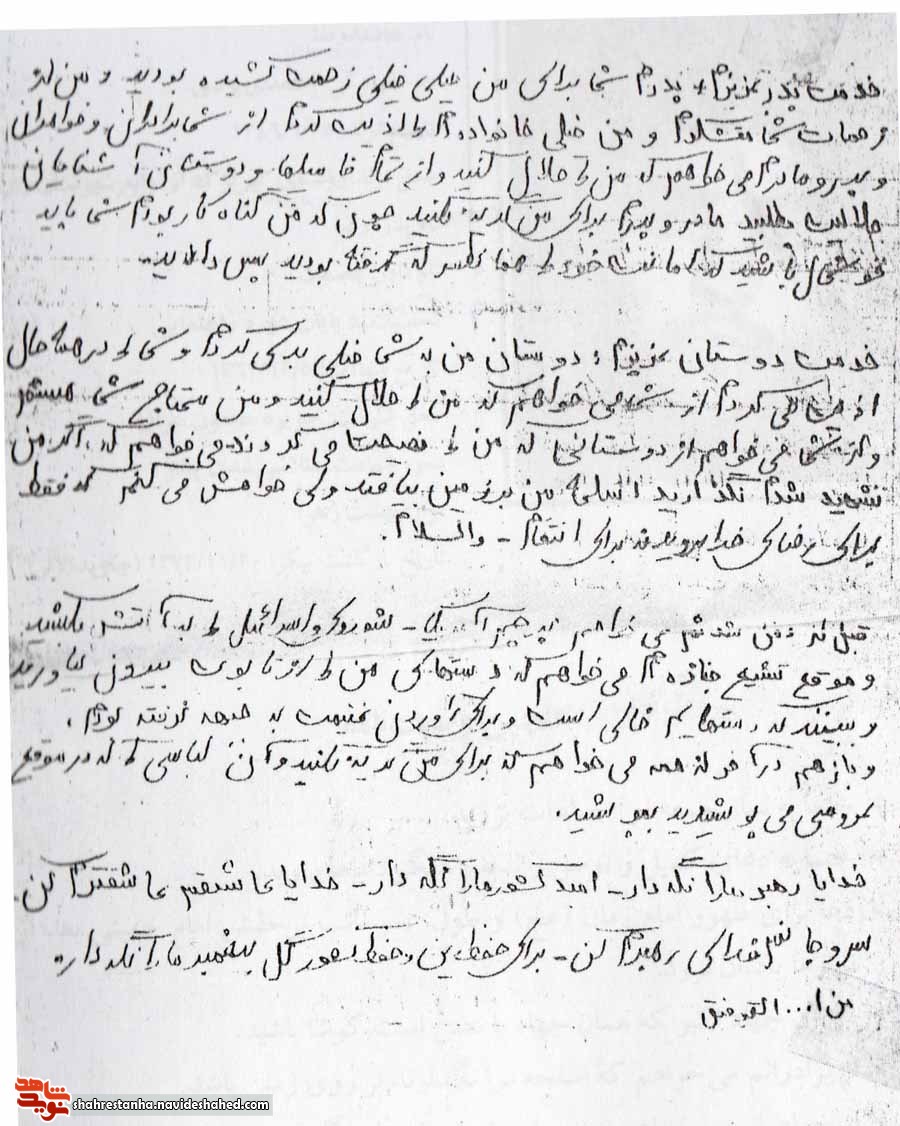 خدمت پدر عزیزم، پدرم شما برای من خیلی خیلی زحمت کشیده بودید و من از
زحمات شما متشکرم و من خیلی خانواده‌ام را اذیت کردم از شما برادران و خواهران
و پدر و مادرم می خواهم که من را حلال کنید و از تمام فامیلها و دوستان و آشنایان
حلالیت بطلبید مادر و پدرم برای من گریه نکنید چون که من گناه کار بودم شما باید
خوشحال باشید که امانت خدا را همانطور که گرفته بودید پس دادید.
خدمت دوستانی عزیزم، دوستان من به شما خیلی بدی کردم و شما را در همه حال
اذیت می کردم از شما می خواهم که من را حلال کنید و من محتاج شما هستم
و از شما می خواهم از دوستانی که من را نصیحت می کردند می خواهم که اگر من
شهید شدم نگذارید اسلحه من بر زمین بیافتد ولی خواهش می کنم که فقط
برای رضای خدا بروید نه برای انتقام - والسلام.
قبل از دفن شدنم می خواهم پرچم آمریکا - شوروی و اسرائیل را به آتش بکشید
و موقع تشیع جنازه‌ام می خواهم که دستهای من را از تابوت بیرون بیاورید
و ببینند که دستهایم خالی است و برای آوردن غنیمت به جبهه نرفته بودم.
و باز هم در آخر از همه می خواهم که برای من گریه نکنید و آن لباسی را که در موقع
عروسی می پوشیدید بپوشید.
خدایا رهبر ما را نگه دار - امید کشور ما را نگه دار - خدایا عاشقم عاشقترم کن.
سر و جانم فدای رهبرم کن - برای حفظ دین و حفظ کشور گل پیغمبر ما را نگه دار.
من ا... التوفیق
نوید شاهد
shahrestanha.navideshahed.com